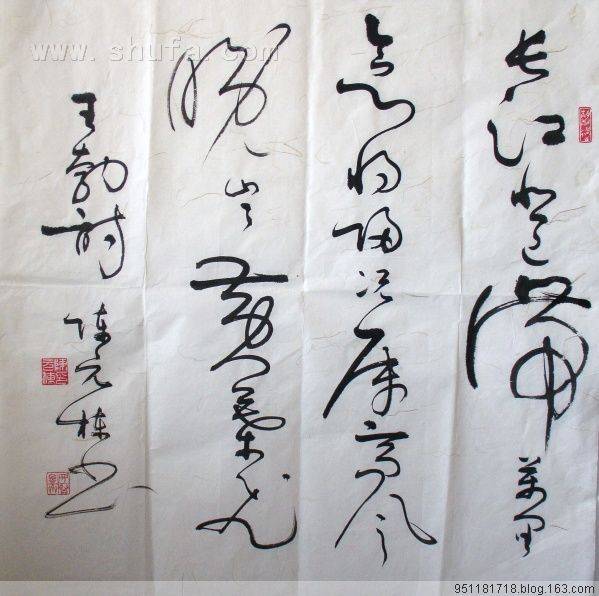 长江悲已滞萬里
念将归况属高风
晚山山黄葉飞
王勃诗 陈元栋书
www.shufa.com
951181718.blog.163.com